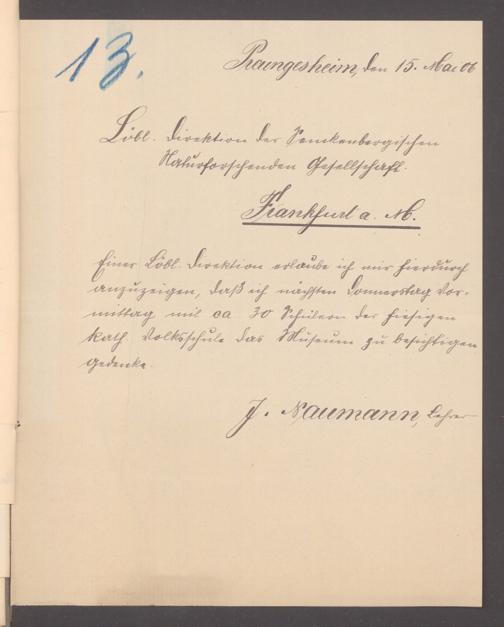 13.
Praungesheim, den 15. Mai 06
Löbl. Direktion der Senckenbergischen
Naturforschenden Gesellschaft.
Frankfurt a. M.
Einer Löbl. Direktion erlaube ich mir hierdurch
anzuzeigen, daß ich nächsten Donnerstag Vor-
mittag mit ca 30 Schülern der hiesigen
kath. Volksschule das Museum zu besichtigen
gedenke.
J. Naumann, Lehrer